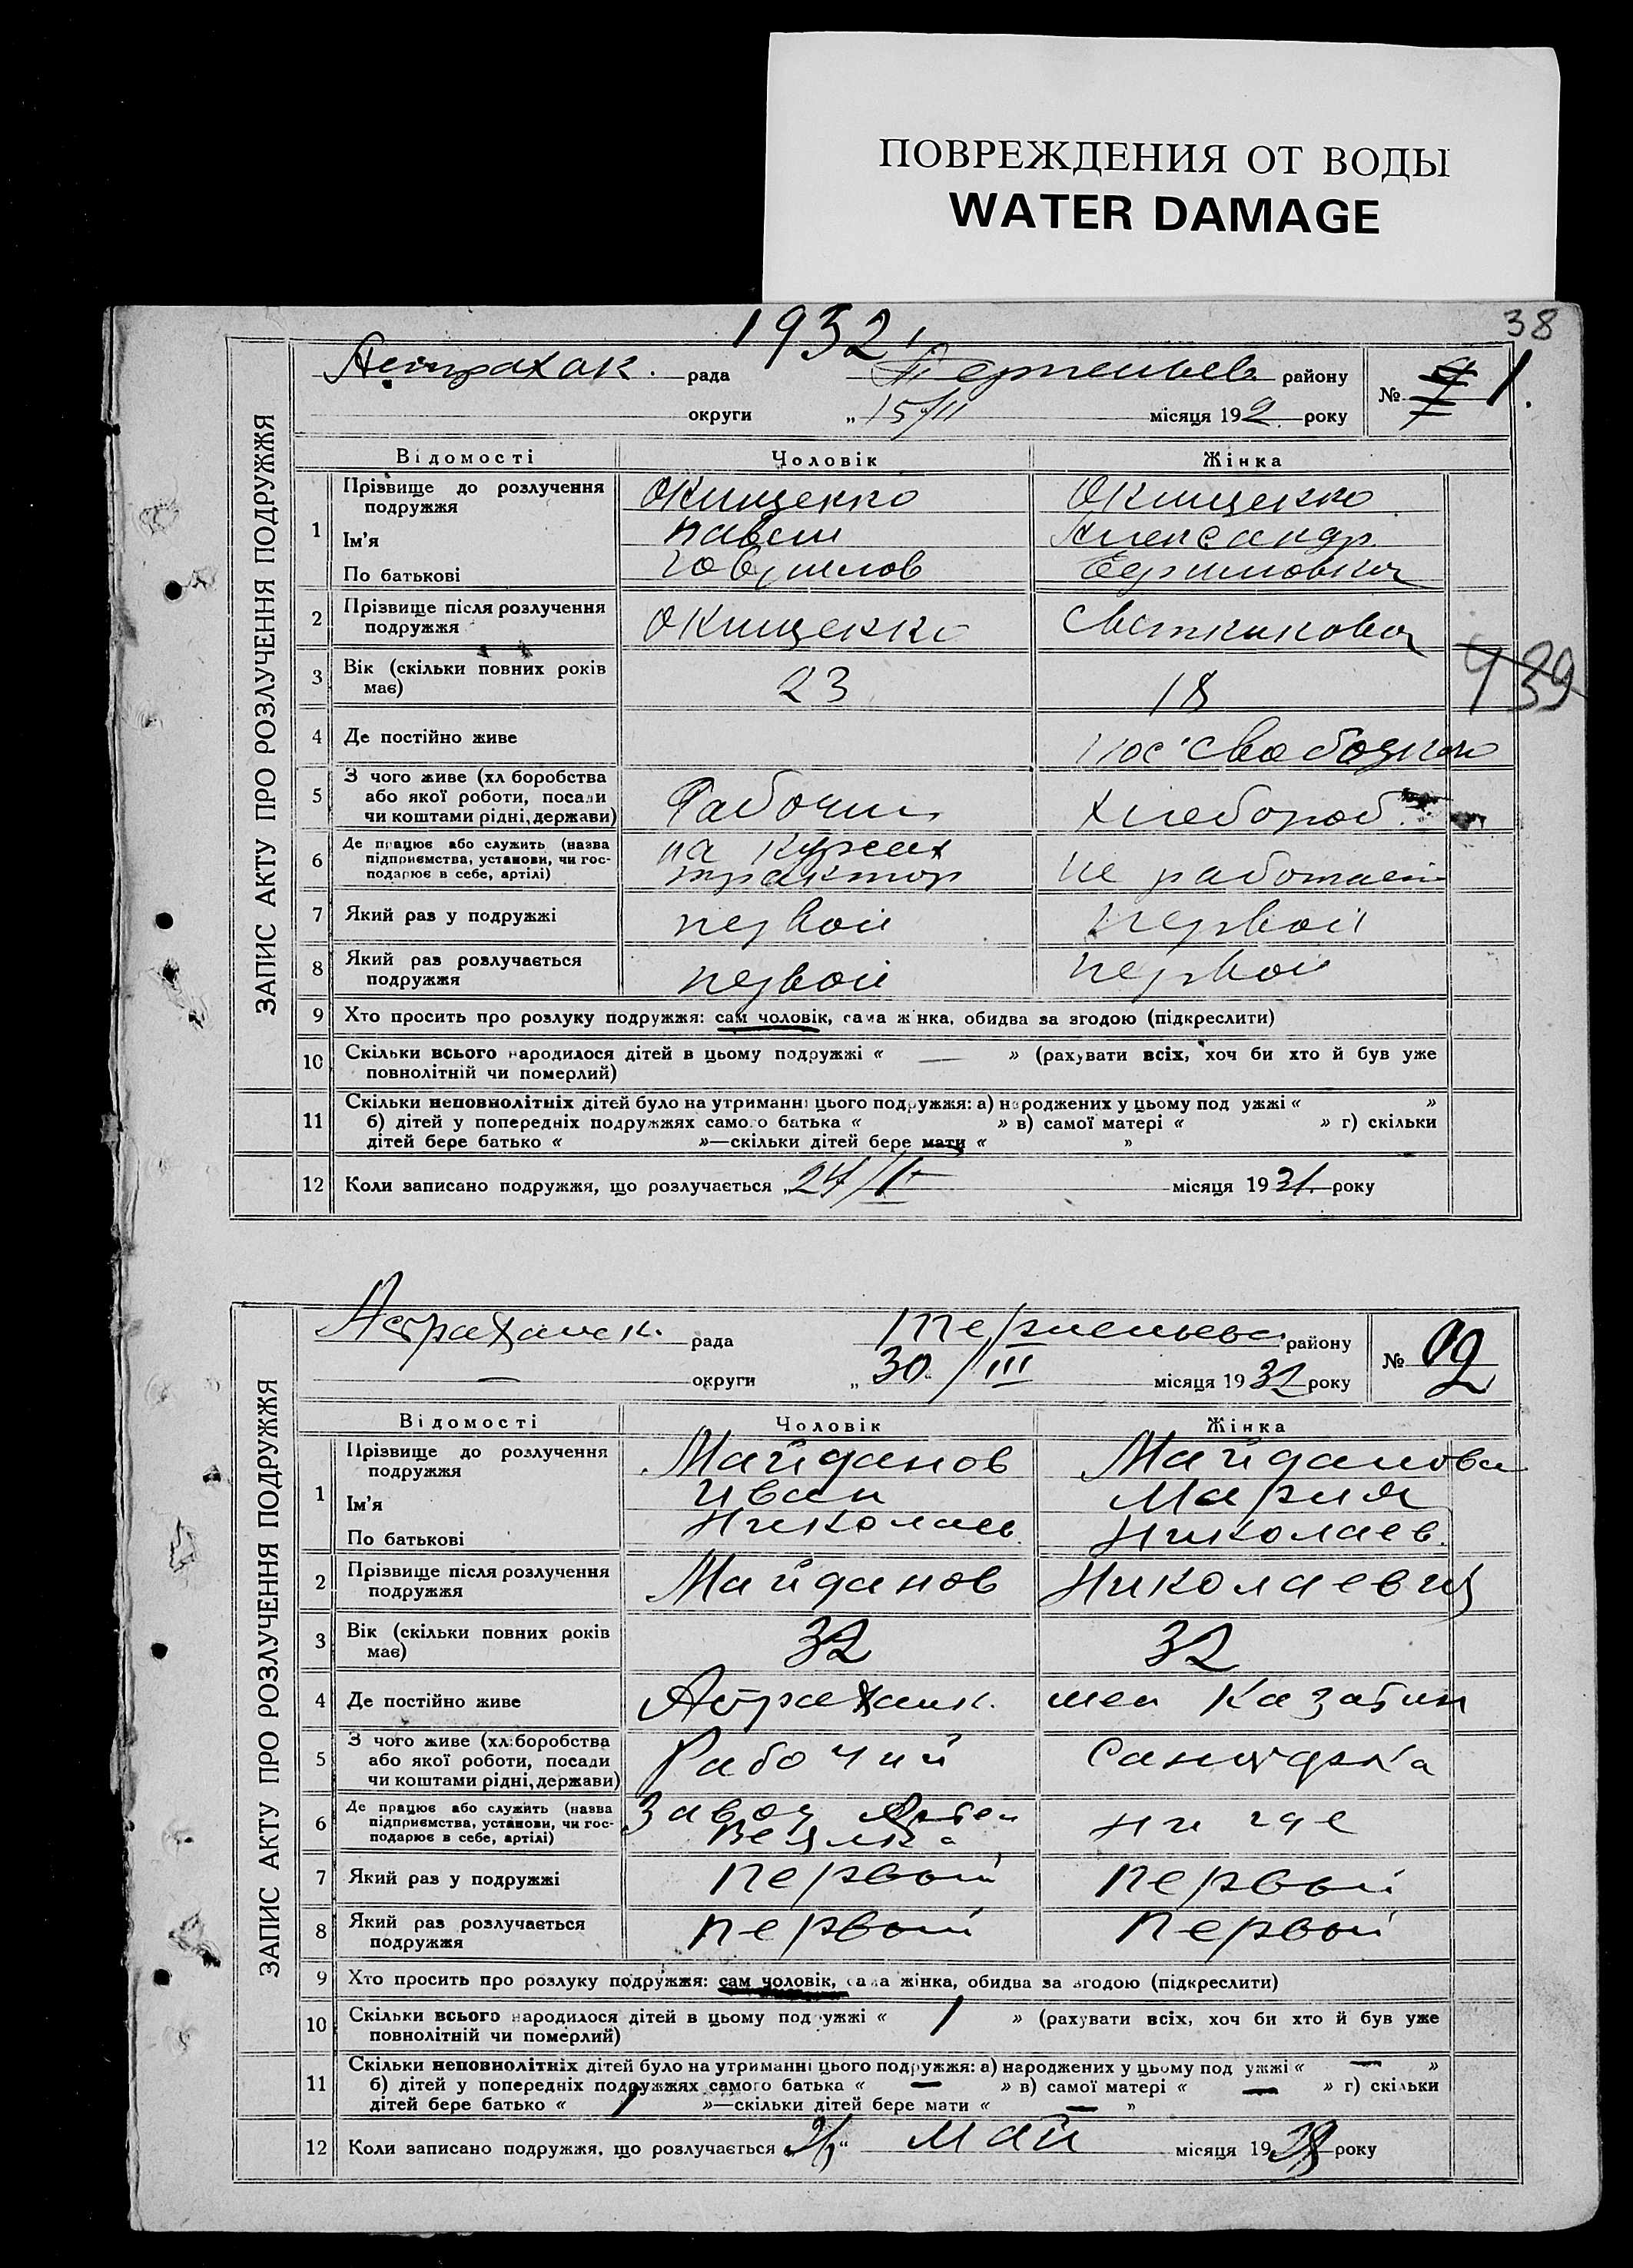 ПОВРЕЖДЕНИЯ ОТ ВОДЫ
WATER DAMAGE
38
1932
Астрахан. рада Терпеньев. району
№ 1.
округи „ 15/II місяця 192 року
ЗАПИС АКТУ ПРО РОЗЛУЧЕННЯ ПОДРУЖЖЯ
Відомості Чоловік Жінка
1 Прізвище до розлучення подружжя Окищенко Окищенко
Ім'я Павел Александр.
По батькові Ефимовна
2 Прізвище після розлучення подружжя Окищенко
439
3 Вік (скільки повних років має) 23 18
4 Де постійно живе пос. Свободное
5 З чого живе (хліборобства або якої роботи, посади чи коштами рідні, держави) Рабочий Хлебороб.
6 Де працює або служить (назва підприємства, установи, чи господарює в себе, артілі) на курсах трактор не работает
7 Який раз у подружжі первой первой
8 Який раз розлучається подружжя первой первой
9 Хто просить про розлуку подружжя: сам чоловік, сама жінка, обидва за згодою (підкреслити)
10 Скільки всього народилося дітей в цьому подружжі « — » (рахувати всіх, хоч би хто й був уже
повнолітній чи померлий)
11 Скільки неповнолітніх дітей було на утриманні цього подружжя: а) народжених у цьому подружжі « »
б) дітей у попередніх подружжях самого батька « » в) самої матері « » г) скільки
дітей бере батько « »—скільки дітей бере мати « »
12 Коли записано подружжя, що розлучається „24/II місяця 1931. року
Астраханск. рада Терпеньевск району
№ 2
— округи „ 30 / III місяця 1932 року
ЗАПИС АКТУ ПРО РОЗЛУЧЕННЯ ПОДРУЖЖЯ
Відомості Чоловік Жінка
1 Прізвище до розлучення подружжя Майданов Майданова
Ім'я Иван Мария
По батькові Николаев. Николаев.
2 Прізвище після розлучення подружжя Майданов Николаевич
3 Вік (скільки повних років має) 32 32
4 Де постійно живе Астраханк.
5 З чого живе (хліборобства або якої роботи, посади чи коштами рідні, держави) Рабочий
6 Де працює або служить (назва підприємства, установи, чи господарює в себе, артілі) Завод ни где
7 Який раз у подружжі первый первый
8 Який раз розлучається подружжя первый первый
9 Хто просить про розлуку подружжя: сам чоловік, сама жінка, обидва за згодою (підкреслити)
10 Скільки всього народилося дітей в цьому подружжі « 1 » (рахувати всіх, хоч би хто й був уже
повнолітній чи померлий)
11 Скільки неповнолітніх дітей було на утриманні цього подружжя: а) народжених у цьому подружжі « — »
б) дітей у попередніх подружжях самого батька « — » в) самої матері « — » г) скільки
дітей бере батько « 1 »—скільки дітей бере мати « — »
12 Коли записано подружжя, що розлучається май місяця 1928 року